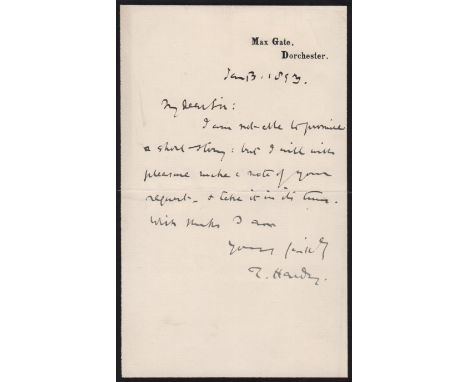 Max Gate,
Dorchester.
Jan 3. 1893.
My dear Sir:
I am not able to promise
a short story: but I will with
pleasure make a note of your
request, & take it in its turn.
With thanks I am
Yours faithfully
T. Hardy.